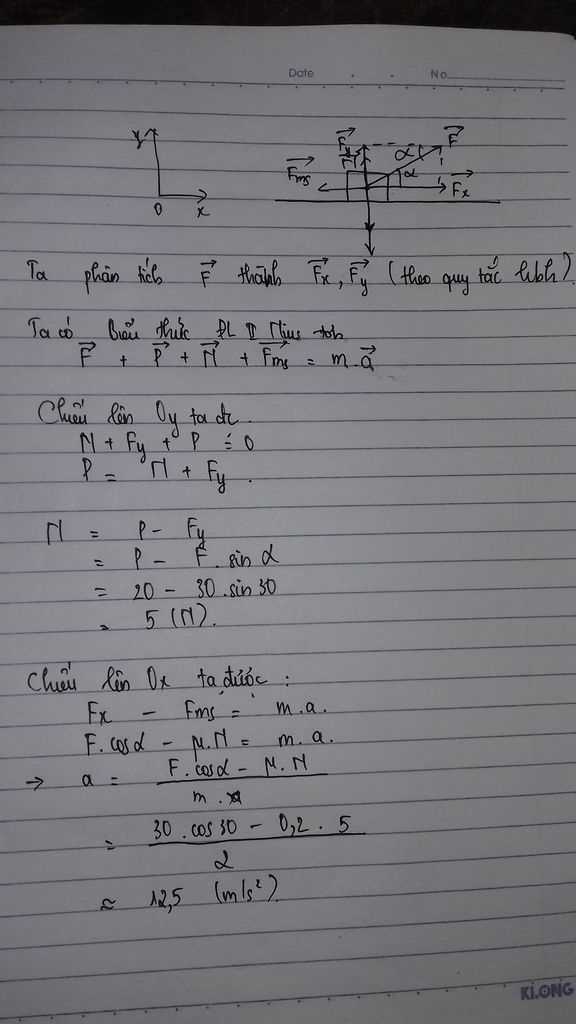 Date No
y
0
x
Fms
Fy
N
α
F
α
Fx
Ta phân tích F thành Fx, Fy (theo quy tắc hbh).
Ta có Biểu thức ĐL II Niu tơn
F + P + N + Fms = m.a
Chiếu lên Oy ta đc.
N + Fy + P = 0
P = N + Fy.
N = P - Fy
= P - F.sin α
= 20 - 30.sin 30
= 5 (N).
Chiếu lên Ox ta được:
Fx - Fms = m.a.
F.cosα - μ.N = m.a.
→ a = F.cosα - μ.N
m.
= 30.cos 30 - 0,2.5
2
≈ 12,5 (m/s²).
KLONG